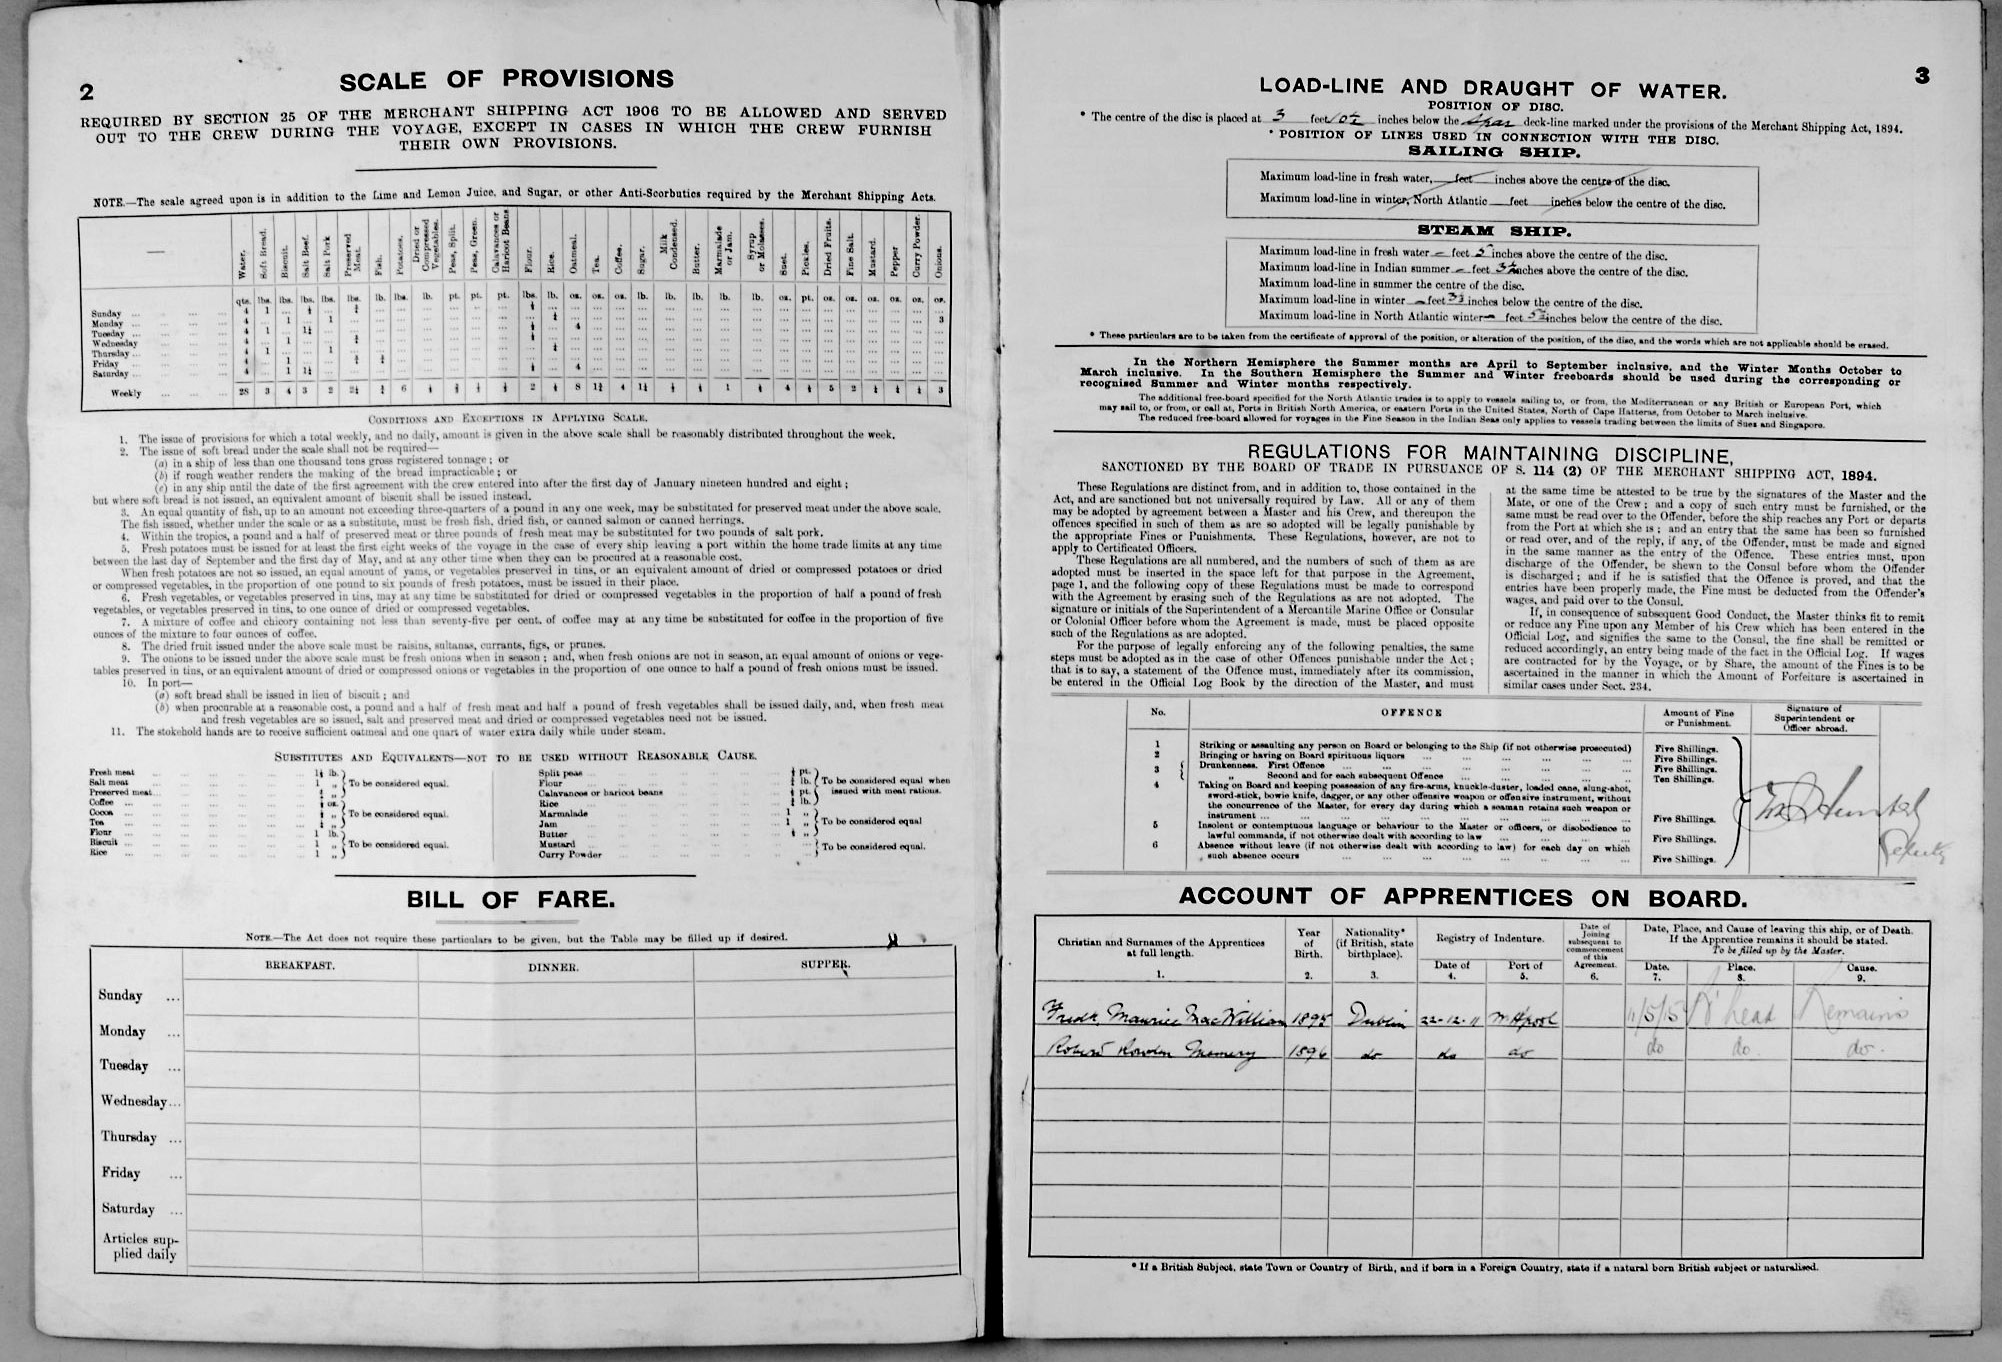 2
SCALE OF PROVISIONS
REQUIRED BY SECTION 25 OF THE MERCHANT SHIPPING ACT 1906 TO BE ALLOWED AND SERVED
OUT TO THE CREW DURING THE VOYAGE, EXCEPT IN CASES IN WHICH THE CREW FURNISH
THEIR OWN PROVISIONS.
NOTE.—The scale agreed upon is in addition to the Lime and Lemon Juice, and Sugar, or other Anti-Scorbutics required by the Merchant Shipping Acts.
— Water. Soft Bread. Biscuit. Salt Beef. Salt Pork Preserved Meat. Fish. Potatoes. Dried or Compressed Vegetables. Peas, Split. Peas, Green. Calavances or Haricot Beans Flour. Rice. Oatmeal. Tea. Coffee. Sugar. Milk Condensed. Butter. Marmalade or Jam. Syrup or Molasses. Suet. Pickles. Dried Fruits. Fine Salt. Mustard. Pepper Curry Powder. Onions.
qts. lbs. lbs. lbs. lbs. lbs. lb. lbs. lb. pt. pt. pt. lbs. lb. oz. oz. oz. lb. lb. lb. lb. lb. oz. pt. oz. oz. oz. oz. oz. oz.
Sunday 4 1
Monday 4 1 1 3
Tuesday 4 1 1½ 4
Wednesday 4 1
Thursday 4 1 1
Friday 4 1
Saturday 4 1 1½ 4
Weekly 28 3 4 3 2 2¼ 6 2 8 4 1 4 5 2 3
CONDITIONS AND EXCEPTIONS IN APPLYING SCALE.
1. The issue of provisions for which a total weekly, and no daily, amount is given in the above scale shall be reasonably distributed throughout the week.
2. The issue of soft bread under the scale shall not be required—
(a) in a ship of less than one thousand tons gross registered tonnage; or
(b) if rough weather renders the making of the bread impracticable; or
(c) in any ship until the date of the first agreement with the crew entered into after the first day of January nineteen hundred and eight;
but where soft bread is not issued, an equivalent amount of biscuit shall be issued instead.
3. An equal quantity of fish, up to an amount not exceeding three-quarters of a pound in any one week, may be substituted for preserved meat under the above scale.
The fish issued, whether under the scale or as a substitute, must be fresh fish, dried fish, or canned salmon or canned herrings.
4. Within the tropics, a pound and a half of preserved meat or three pounds of fresh meat may be substituted for two pounds of salt pork.
5. Fresh potatoes must be issued for at least the first eight weeks of the voyage in the case of every ship leaving a port within the home trade limits at any time
between the last day of September and the first day of May, and at any other time when they can be procured at a reasonable cost.
When fresh potatoes are not so issued, an equal amount of yams, or vegetables preserved in tins, or an equivalent amount of dried or compressed potatoes or dried
or compressed vegetables, in the proportion of one pound to six pounds of fresh potatoes, must be issued in their place.
6. Fresh vegetables, or vegetables preserved in tins, may at any time be substituted for dried or compressed vegetables in the proportion of half a pound of fresh
vegetables, or vegetables preserved in tins, to one ounce of dried or compressed vegetables.
7. A mixture of coffee and chicory containing not less than seventy-five per cent. of coffee may at any time be substituted for coffee in the proportion of five
ounces of the mixture to four ounces of coffee.
8. The dried fruit issued under the above scale must be raisins, sultanas, currants, figs, or prunes.
9. The onions to be issued under the above scale must be fresh onions when in season; and, when fresh onions are not in season, an equal amount of onions or vege-
tables preserved in tins, or an equivalent amount of dried or compressed onions or vegetables in the proportion of one ounce to half a pound of fresh onions must be issued.
10. In port—
(a) soft bread shall be issued in lieu of biscuit; and
(b) when procurable at a reasonable cost, a pound and a half of fresh meat and half a pound of fresh vegetables shall be issued daily, and, when fresh meat
and fresh vegetables are so issued, salt and preserved meat and dried or compressed vegetables need not be issued.
11. The stokehold hands are to receive sufficient oatmeal and one quart of water extra daily while under steam.
SUBSTITUTES AND EQUIVALENTS—NOT TO BE USED WITHOUT REASONABLE CAUSE.
Fresh meat
Salt meat 1 „ To be considered equal.
Preserved meat
Coffee
Cocoa To be considered equal.
Tea
Flour 1 lb.
Biscuit 1 „ To be considered equal.
Rice 1 „
Split peas
Flour To be considered equal when
Calavances or haricot beans issued with meat rations.
Rice
Marmalade 1 „
Jam 1 „ To be considered equal
Butter
Mustard To be considered equal.
Curry Powder
BILL OF FARE.
NOTE.—The Act does not require these particulars to be given, but the Table may be filled up if desired.
BREAKFAST. DINNER. SUPPER.
Sunday ...
Monday ...
Tuesday ...
Wednesday...
Thursday ...
Friday ...
Saturday ...
Articles sup-
plied daily
3
LOAD-LINE AND DRAUGHT OF WATER.
POSITION OF DISC.
* The centre of the disc is placed at 3 feet 10½ inches below the Spar deck-line marked under the provisions of the Merchant Shipping Act, 1894.
* POSITION OF LINES USED IN CONNECTION WITH THE DISC.
SAILING SHIP.
Maximum load-line in fresh water, feet inches above the centre of the disc.
Maximum load-line in winter, North Atlantic feet inches below the centre of the disc.
STEAM SHIP.
Maximum load-line in fresh water – feet 5 inches above the centre of the disc.
Maximum load-line in Indian summer – feet 3½ inches above the centre of the disc.
Maximum load-line in summer the centre of the disc.
Maximum load-line in winter – feet 3½ inches below the centre of the disc.
Maximum load-line in North Atlantic winter – feet 5½ inches below the centre of the disc.
* These particulars are to be taken from the certificate of approval of the position, or alteration of the position, of the disc, and the words which are not applicable should be erased.
In the Northern Hemisphere the Summer months are April to September inclusive, and the Winter Months October to
March inclusive. In the Southern Hemisphere the Summer and Winter freeboards should be used during the corresponding or
recognised Summer and Winter months respectively.
The additional free-board specified for the North Atlantic trades is to apply to vessels sailing to, or from, the Mediterranean or any British or European Port, which
may sail to, or from, or call at, Ports in British North America, or eastern Ports in the United States, North of Cape Hatteras, from October to March inclusive.
The reduced free-board allowed for voyages in the Fine Season in the Indian Seas only applies to vessels trading between the limits of Suez and Singapore.
REGULATIONS FOR MAINTAINING DISCIPLINE,
SANCTIONED BY THE BOARD OF TRADE IN PURSUANCE OF S. 114 (2) OF THE MERCHANT SHIPPING ACT, 1894.
These Regulations are distinct from, and in addition to, those contained in the
Act, and are sanctioned but not universally required by Law. All or any of them
may be adopted by agreement between a Master and his Crew, and thereupon the
offences specified in such of them as are so adopted will be legally punishable by
the appropriate Fines or Punishments. These Regulations, however, are not to
apply to Certificated Officers.
These Regulations are all numbered, and the numbers of such of them as are
adopted must be inserted in the space left for that purpose in the Agreement,
page 1, and the following copy of these Regulations must be made to correspond
with the Agreement by erasing such of the Regulations as are not adopted. The
signature or initials of the Superintendent of a Mercantile Marine Office or Consular
or Colonial Officer before whom the Agreement is made, must be placed opposite
such of the Regulations as are adopted.
For the purpose of legally enforcing any of the following penalties, the same
steps must be adopted as in the case of other Offences punishable under the Act;
that is to say, a statement of the Offence must, immediately after its commission,
be entered in the Official Log Book by the direction of the Master, and must
at the same time be attested to be true by the signatures of the Master and the
Mate, or one of the Crew; and a copy of such entry must be furnished, or the
same must be read over to the Offender, before the ship reaches any Port or departs
from the Port at which she is; and an entry that the same has been so furnished
or read over, and of the reply, if any, of the Offender, must be made and signed
in the same manner as the entry of the Offence. These entries must, upon
discharge of the Offender, be shewn to the Consul before whom the Offender
is discharged; and if he is satisfied that the Offence is proved, and that the
entries have been properly made, the Fine must be deducted from the Offender's
wages, and paid over to the Consul.
If, in consequence of subsequent Good Conduct, the Master thinks fit to remit
or reduce any Fine upon any Member of his Crew which has been entered in the
Official Log, and signifies the same to the Consul, the fine shall be remitted or
reduced accordingly, an entry being made of the fact in the Official Log. If wages
are contracted for by the Voyage, or by Share, the amount of the Fines is to be
ascertained in the manner in which the Amount of Forfeiture is ascertained in
similar cases under Sect. 234.
No. OFFENCE Amount of Fine or Punishment. Signature of Superintendent or Officer abroad.
1 Striking or assaulting any person on Board or belonging to the Ship (if not otherwise prosecuted) Five Shillings.
2 Bringing or having on Board spirituous liquors Five Shillings.
3 Drunkenness. First Offence Five Shillings.
„ Second and for each subsequent Offence Ten Shillings.
4 Taking on Board and keeping possession of any fire-arms, knuckle-duster, loaded cane, slung-shot,
sword-stick, bowie knife, dagger, or any other offensive weapon or offensive instrument, without
the concurrence of the Master, for every day during which a seaman retains such weapon or
instrument Five Shillings.
5 Insolent or contemptuous language or behaviour to the Master or officers, or disobedience to
lawful commands, if not otherwise dealt with according to law Five Shillings.
6 Absence without leave (if not otherwise dealt with according to law) for each day on which
such absence occurs Five Shillings.
Deputy
ACCOUNT OF APPRENTICES ON BOARD.
Christian and Surnames of the Apprentices at full length. 1.
Year of Birth. 2.
Nationality* (if British, state birthplace). 3.
Registry of Indenture. Date of 4. Port of 5.
Date of Joining subsequent to commencement of this Agreement. 6.
Date, Place, and Cause of leaving this ship, or of Death.
If the Apprentice remains it should be stated.
To be filled up by the Master.
Date. 7. Place. 8. Cause. 9.
Fredk. Maurice MacWilliam 1895 Dublin 22-12-11 11/5/15 B'head Remains
Robert Rowden 1896 do do do do do. do.
* If a British Subject, state Town or Country of Birth, and if born in a Foreign Country, state if a natural born British subject or naturalised.